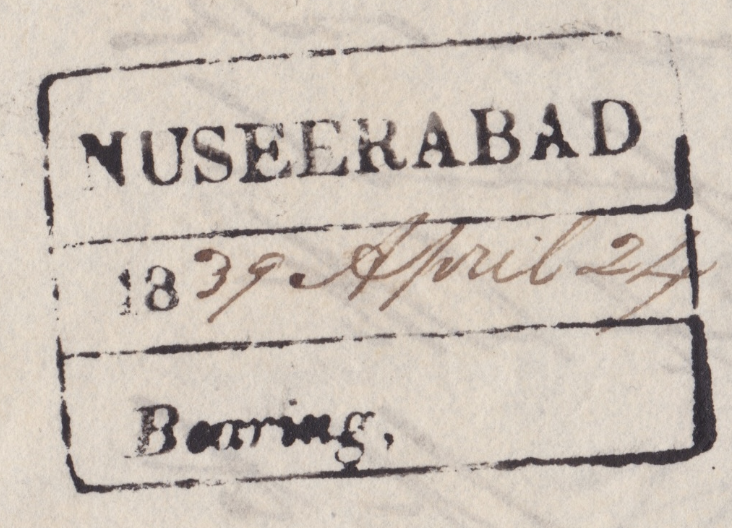 NUSEERABAD
1839 April 24
Bearing,